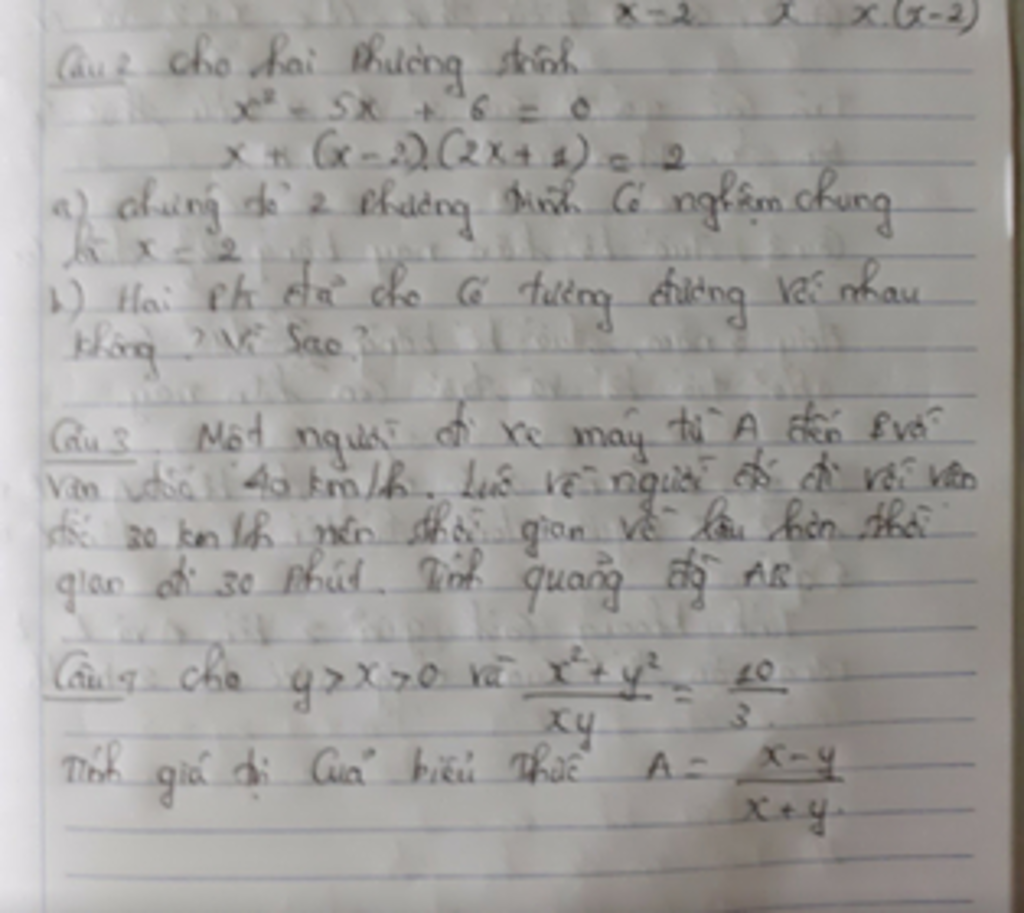 x-2 x x(x-2)
Câu 2 cho hai phương trình
x² - 5x + 6 = 0
x + (x-2).(2x+1) = 2
a) chứng tỏ 2 phương trình có nghiệm chung
là x = 2
b) Hai Pt đã cho có tương đương với nhau
không ? Vì sao?
Câu 3. Một người đi xe máy từ A đến B với
vận tốc 40 km/h. Lúc về người đó đi với vận
tốc 30 km/h nên thời gian về lâu hơn thời
gian đi 30 phút. Tính quảng đg AB.
Câu 4 cho y>x>0 và x²+y²/xy = 10/3
Tính giá trị của biểu thức A = x-y/x+y.